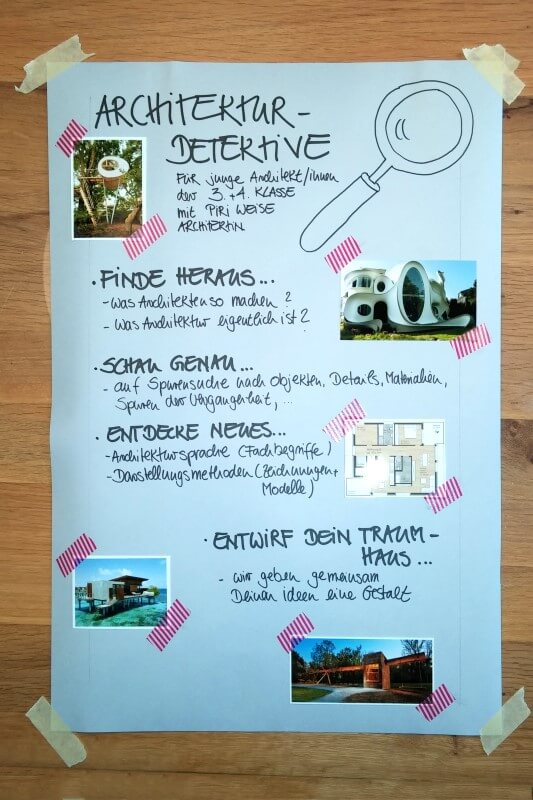 ARCHITEKTUR-
DETEKTIVE
FÜR junge Architekt/innen
der 3.+4. KLASSE
mit PIRI WEISE
ARCHITEKTIN
· FINDE HERAUS...
- was Architekten so machen?
- was Architektur eigentlich ist?
· SCHAU GENAU...
- auf Spurensuche nach Objekten, Details, Materialien,
Spuren der Vergangenheit, ...
· ENTDECKE NEUES...
- Architektursprache (Fachbegriffe)
- Darstellungsmethoden (Zeichnungen+
Modelle)
· ENTWIRF DEIN TRAUM-
HAUS...
- wir geben gemeinsam
Deinen Ideen eine Gestalt